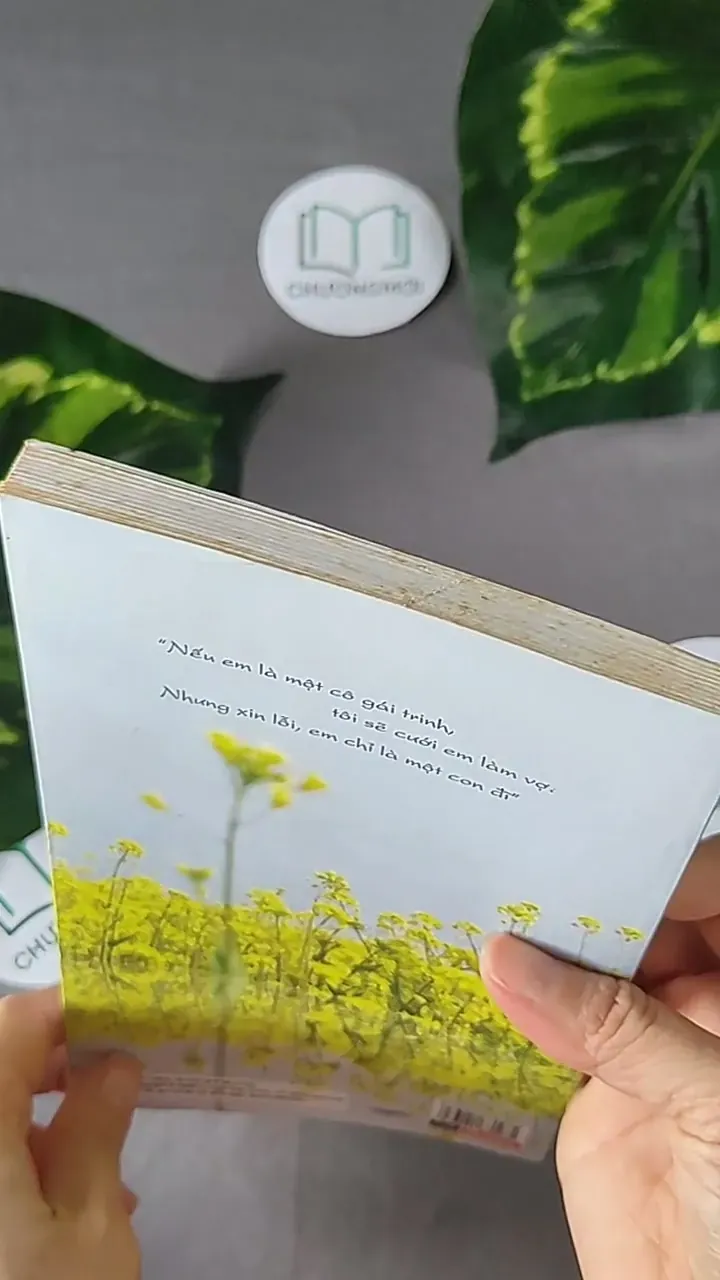 CHƯƠNG MỚI
"Nếu em là một cô gái trinh,
tôi sẽ cưới em làm vợ.
Nhưng xin lỗi, em chỉ là một con đĩ"
CHƯ